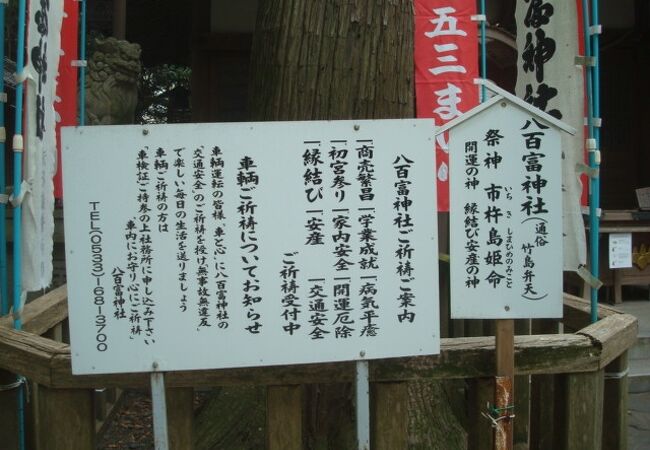 八百富神社(通俗 竹島弁天)
祭神 市杵島姫命
いちきしまひめのみこと
開運の神 縁結び安産の神
八百富神社ご祈祷ご案内
一商売繁昌 一学業成就 一病気平癒
一初宮参り 一家内安全 一開運厄除
一縁結び 一安産 一交通安全
ご祈祷受付中
車輌ご祈祷についてお知らせ
車輌運転の皆様、車と心」に八百富神社の
「交通安全」のご祈祷を授け、無事故無違反」
で楽しい毎日の生活を送りましょう
車輌ご祈祷の方は
「車検証ご持参の上社務所に申し込み下さい
車内にお守り心にご祈祷」
八百富神社
TEL(0533)-68-3700
富神社
五三まい
富神